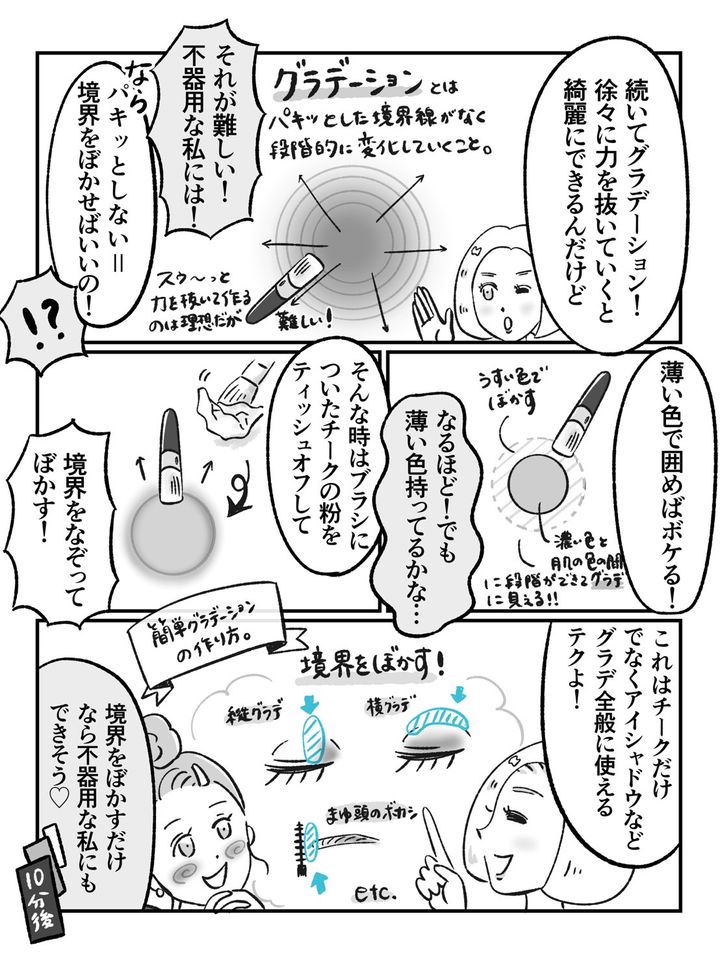 続いてグラデーション！
徐々に力を抜いていくと
綺麗にできるんだけど
グラデーションとは
パキッとした境界線がなく
段階的に変化していくこと。
スゥ〜っと
力を抜いて作る
のは理想だが
難しい！
それが難しい！
不器用な私には！
なら
パキッとしない＝
境界をぼかせばいいの！
!?
薄い色で囲めばボケる！
うすい色で
ぼかす
濃い色と
肌の色の間
に段階ができてグラデ
に見える!!
なるほど！でも
薄い色持ってるかな…
そんな時はブラシに
ついたチークの粉を
ティッシュオフして
境界をなぞって
ぼかす！
これはチークだけ
でなくアイシャドウなど
グラデ全般に使える
テクよ！
簡単グラデーション
の作り方。
境界をぼかす！
縦グラデ
横グラデ
まゆ頭のボカシ
etc.
境界をぼかすだけ
なら不器用な私にも
できそう♡
10分後